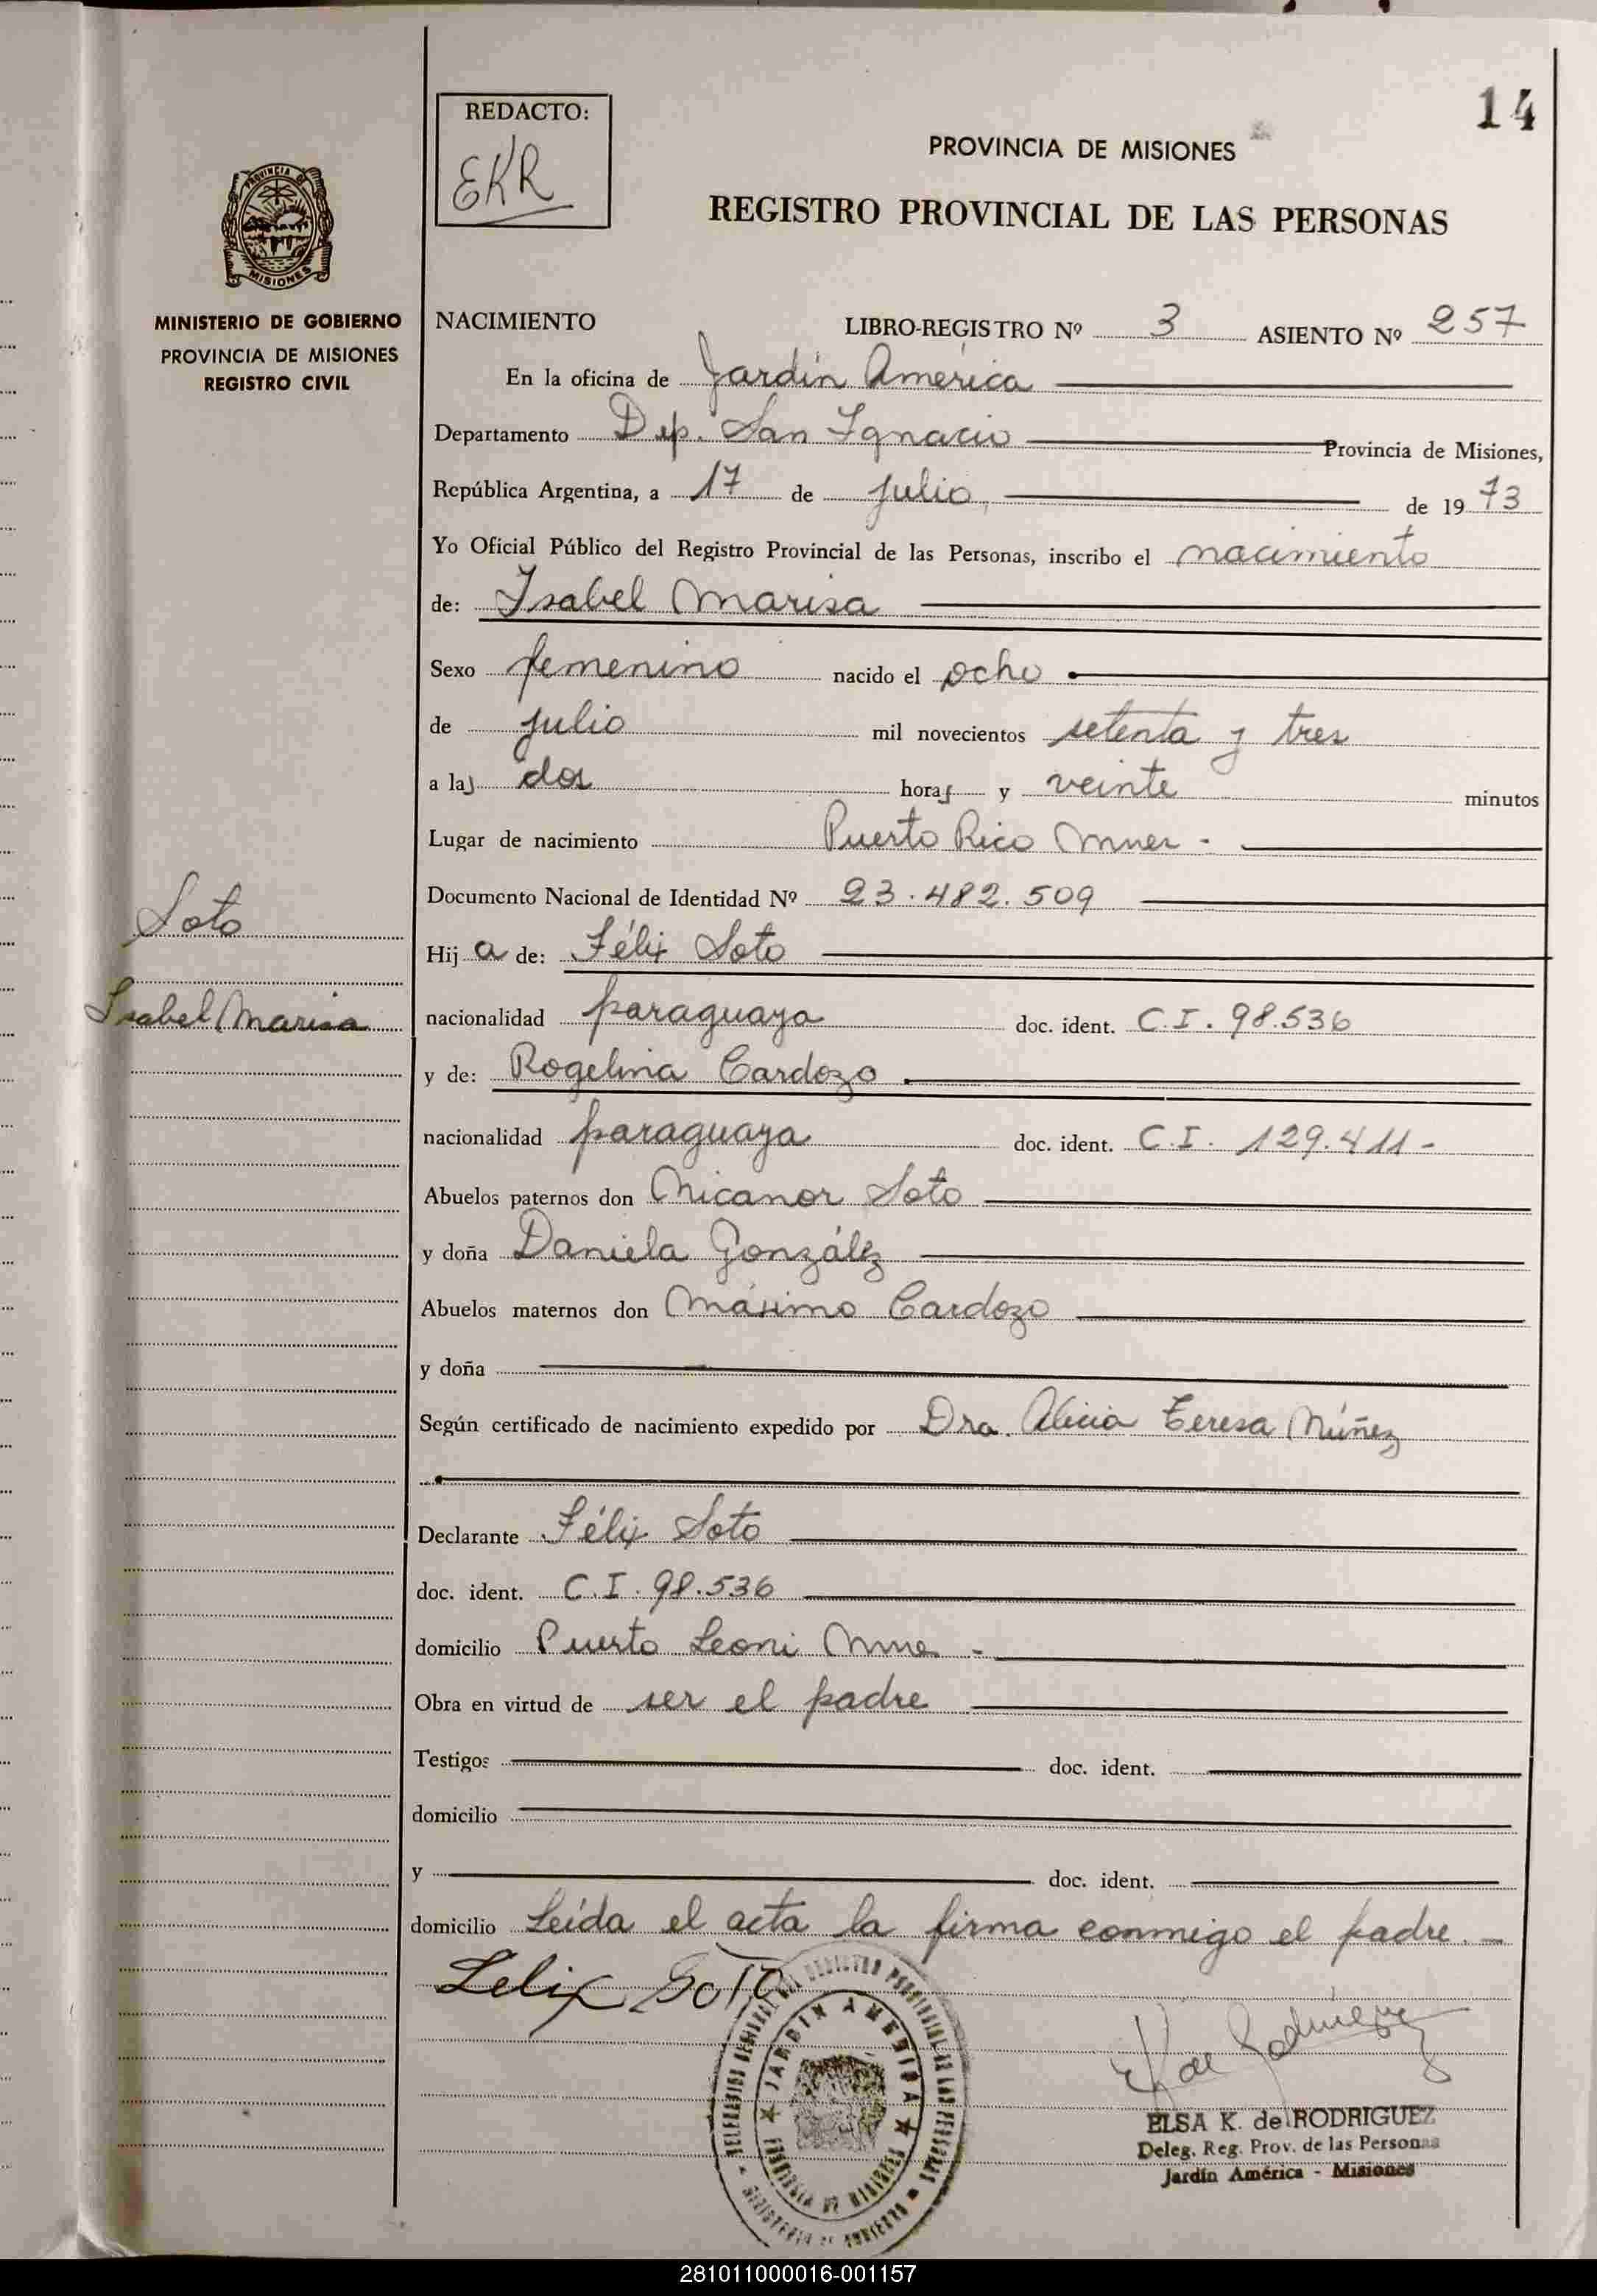 14
REDACTO:
EKR
PROVINCIA DE MISIONES
REGISTRO PROVINCIAL DE LAS PERSONAS
PROVINCIA DE
MISIONES
MINISTERIO DE GOBIERNO
PROVINCIA DE MISIONES
REGISTRO CIVIL
NACIMIENTO LIBRO-REGISTRO Nº 3 ASIENTO Nº 257
En la oficina de Jardín América
Departamento Dep. San Ignacio Provincia de Misiones,
República Argentina, a 17 de julio, de 1973
Yo Oficial Público del Registro Provincial de las Personas, inscribo el nacimiento
de: Isabel Marisa
Sexo femenino nacido el ocho
de julio mil novecientos setenta y tres
a las dos horas y veinte minutos
Lugar de nacimiento Puerto Rico Mnes -
Documento Nacional de Identidad Nº 23.482.509
Soto
Isabel Marisa
Hij a de: Félix Soto
nacionalidad paraguaya doc. ident. C.I. 98.536
y de: Rogelina Cardozo
nacionalidad paraguaya doc. ident. C.I. 129.411-
Abuelos paternos don Nicanor Soto
y doña Daniela González
Abuelos maternos don Máximo Cardozo
y doña
Según certificado de nacimiento expedido por Dra. Alicia Teresa Núñez
Declarante Félix Soto
doc. ident. C.I. 98.536
domicilio Puerto Leoni Mnes -
Obra en virtud de ser el padre
Testigos doc. ident.
domicilio
y doc. ident.
domicilio Leída el acta la firma conmigo el padre.-
Felix SOTO
E K de Rodriguez
JARDIN AMERICA
PROVINCIA DE MISIONES
MINISTERIO DE GOBIERNO
ELSA K. de RODRIGUEZ
Deleg. Reg. Prov. de las Personas
Jardín América - Misiones
281011000016-001157